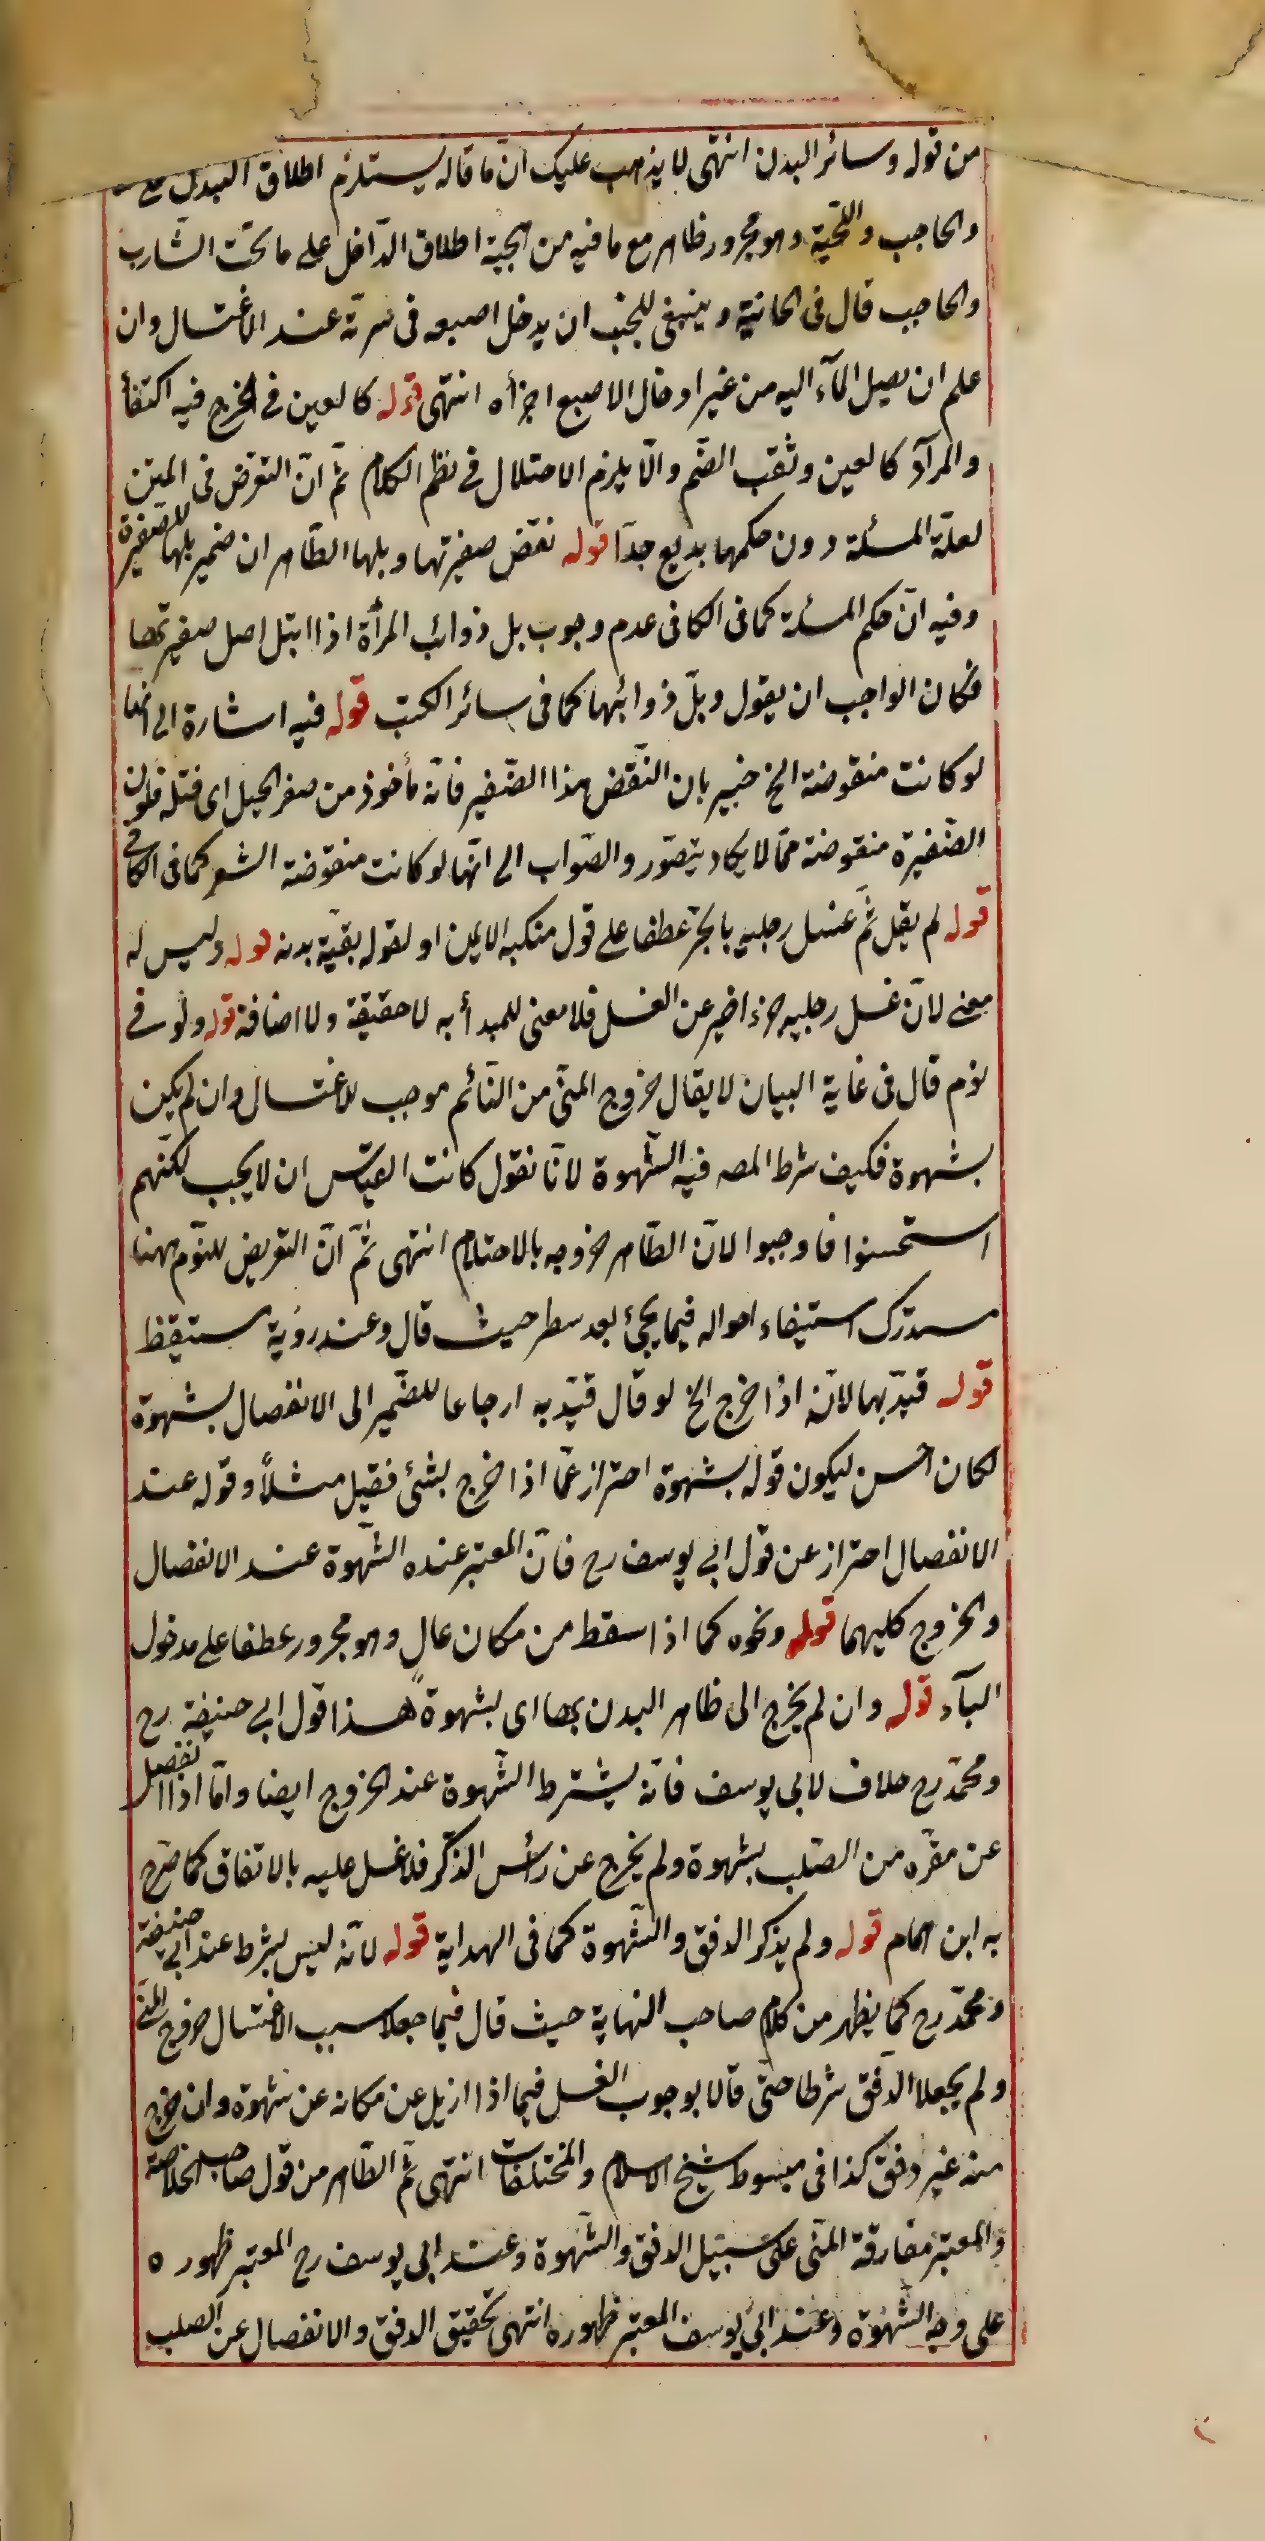 من قوله وسائر البدن انتهى لا يذهب عليك انّ ما قاله يستلزم اطلاق البدل على
والحاجب واللّحية وهو مجرور ظاهر مع ما فيه من هجية اطلاق الدّاخل على ما تحت الشّارب
والحاجب قال فى الخانية وينبغى للجنب ان يدخل اصبعه فى سرته عند الاغتسال وان
علم ان يصيل المآء اليه من غير ادخال الاصبع اجزأه انتهى قوله كالعين فى الحرج فيه اكتفأ
والمرآد كالعين وثقب الضّم والّا يلزم الاختلال فى نظم الكلام ثمّ انّ التعرّض فى المتن
لعلّة المسئلة دون حكمها بديع جدّا قوله نقض ضفيرتها وبلها الظّاهر ان ضمير بلها للضّفيرة
وفيه انّ حكم المسئلة كما فى الكافى عدم وجوب بل ذوائب المرأة اذا ابتل اصل ضفيرتها
فكان الواجب ان يقول وبلّ ذوائبها كما فى سائر الكتب قوله فيه اشارة الى انها
لو كانت منقوضة الخ خبير بان النّقض هذا الضّفير فانّه مأخوذ من ضفر الحبل اى فتله فكون
الضّفيرة منقوضة ممّا لا يكاد يتصوّر والصّواب الى انّها لو كانت منقوضة الشعر كما فى الكافى
قوله لم يقل ثم غسل رجليه بالجرّ عطفا على قول منكبه الايمن او لقوله بقيّة بدنه قوله وليس له
معنى لانّ غسل رجليه جزء اخير عن الغسل فلا معنى للمبدأ به لا حقيقة ولا اضافة قوله ولو فى
نوم قال فى غاية البيان لا يقال خروج المنّى من النّائم موجب للاغتسال وان لم يكن
بشهوة فكيف شرط المصه فيه الشّهوة لانّا نقول كانت القياس ان لا يجب لكنّهم
استحسنوا فاوجبوا لانّ الظّاهر خروجه بالاحتلام انتهى ثمّ انّ التعريض للنّوم ههنا
مستدرك استيفاء احواله فيما يجئ بعد سطر حيث قال وعند رؤية مستيقظ
قوله قيّد بها لانّه اذا خرج الخ لو قال قيّد به ارجاعا للضّمير الى الانفصال بشهوة
لكان احسن ليكون قوله بشهوة احتراز عمّا اذا خرج بشئ فقيل مثلاً وقوله عند
الانفصال احتراز عن قول ابى يوسف رح فانّ المعتبر عنده الشّهوة عند الانفصال
والخروج كليهما قوله ونحوه كما اذا سقط من مكان عالٍ وهو مجرور عطفا على مدخول
البآء قوله وان لم يخرج الى ظاهر البدن بها اى بشهوة هذا قول ابى حنيفة رح
ومحمّد رح خلاف لابى يوسف فانّه يشترط الشّهوة عند الخروج ايضا وامّا اذا انفصل
عن مقرّه من الصّلب بشهوة ولم يخرج عن رأس الذّكر فلا غسل عليه بالاتفاق كما صرّح
به ابن الهمام قوله ولم يذكر الدفق والشّهوة كما فى الهداية قوله لانّه ليس بشرط عند ابى حنيفة
ومحمّد رح كما يظهر من كلام صاحب النهاية حيث قال فيما جعلا سبب الاغتسال خروج المنّى
ولم يجعلا الدّفق شرطا حتّى قالا بوجوب الغسل فيما اذا ازيل عن مكانه عن شهوة وان خرج
منه غير دفق كذا فى مبسوط شيخ الاسلام والمختلفات انتهى ثمّ الظّاهر من قول صاحب الخلاصة
والمعتبر مفارقة المنّى على سبيل الدفق والشّهوة وعند ابى يوسف رح المعتبر ظهوره
على وجه الشّهوة وعند ابى يوسف المعتبر ظهوره انتهى تحقيق الدفق والانفصال عن الصلب